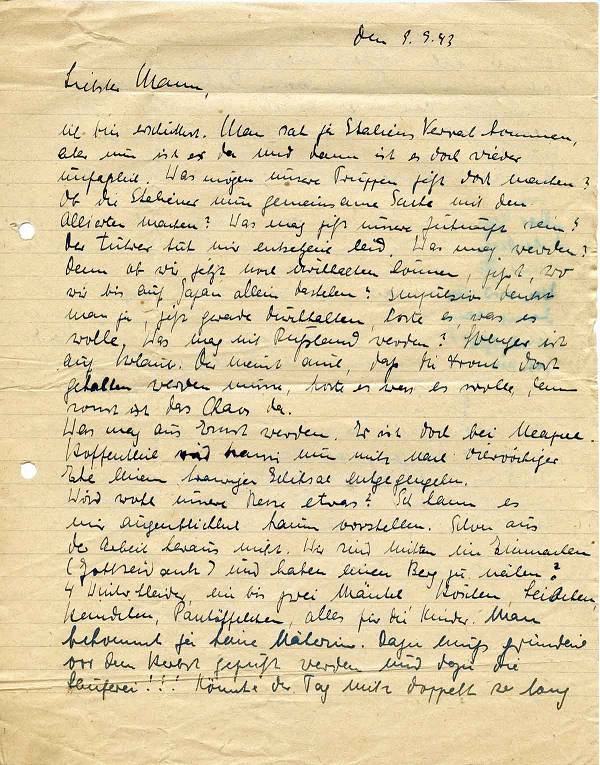 den 9.9.43
Liebster Mann,
ich bin erschüttert. Man sah ja Italiens Verrat kommen,
aber nun ist er da und dann ist es doch wieder
unfaßlich. Was mögen unsere Truppen jetzt dort machen?
Ob die Italiener nun gemeinsame Sache mit den
Alliierten machen? Was mag jetzt unsere Zukunft sein?
Der Führer tut mir entsetzlich leid. Was mag werden?
Denn ob wir jetzt noch durchhalten können, jetzt, wo
wir bis auf Japan allein dastehen? Impulsiv denkt
man ja, jetzt gerade durchhalten, koste es, was es
wolle. Was mag mit Rußland werden? ist
auf Urlaub. Der meint auch, daß die Front dort
gehalten werden müsse, koste es was es wolle, denn
sonst ist das Chaos da.
Was mag aus Ernst werden. Er ist doch bei Neapel.
Hoffentlich Hanni nun nicht nach vierwöchiger
Ehe einem traurigen Schicksal entgegengehen.
Wird wohl unsere Reise etwas? Ich kann es
mir augenblicklich kaum vorstellen. Schon aus
der Arbeit heraus nicht. Wir sind mitten im Einmachen
(Gottseidank) und haben einen Berg zu nähen?
4 Winterkleider, ein bis zwei Mäntel
Hemdchen, Pantöffelchen, alles für die Kinder. Man
bekommt ja keine Näherin. Dazu muß gründlich
vor dem Herbst geputzt werden und dazu die
Lauferei!!! Könnte der Tag nicht doppelt so lang